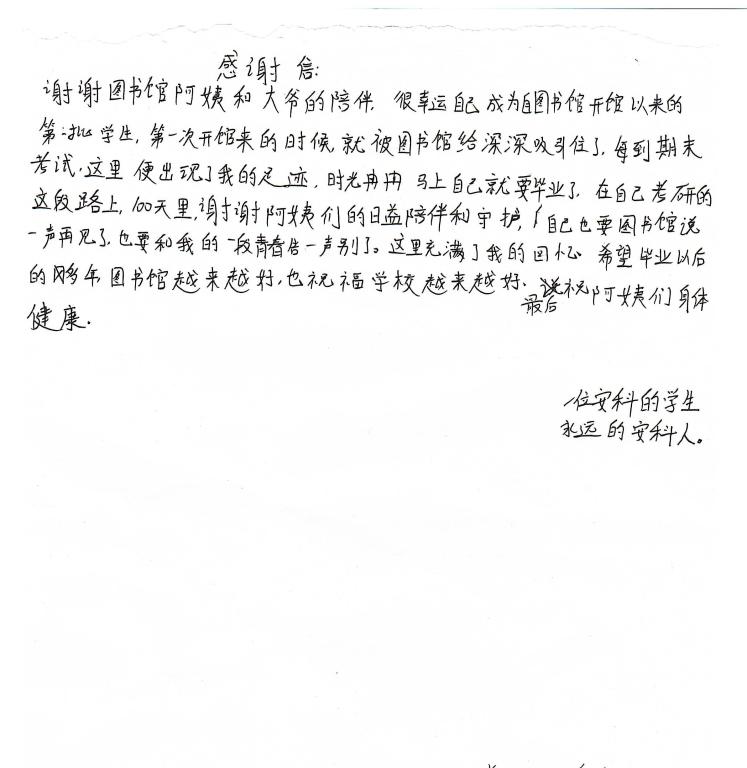 感谢信:
谢谢图书馆阿姨和大爷的陪伴. 很幸运自己成为自图书馆开馆以来的
第一批学生, 第一次开馆来的时候, 就被图书馆给深深吸引住了, 每到期末
考试, 这里便出现了我的足迹, 时光冉冉 马上自己就要毕业了. 在自己考研的
这段路上, 100天里, 谢谢阿姨们的日益陪伴和守护, 自己也要图书馆说
一声再见了, 也要和我的一段青春告一声别了。这里充满了我的回忆 希望毕业以后
的 多年 图书馆越来越好, 也祝福学校越来越好、最后祝阿姨们身体
健康.
一位安科的学生
永远的安科人。